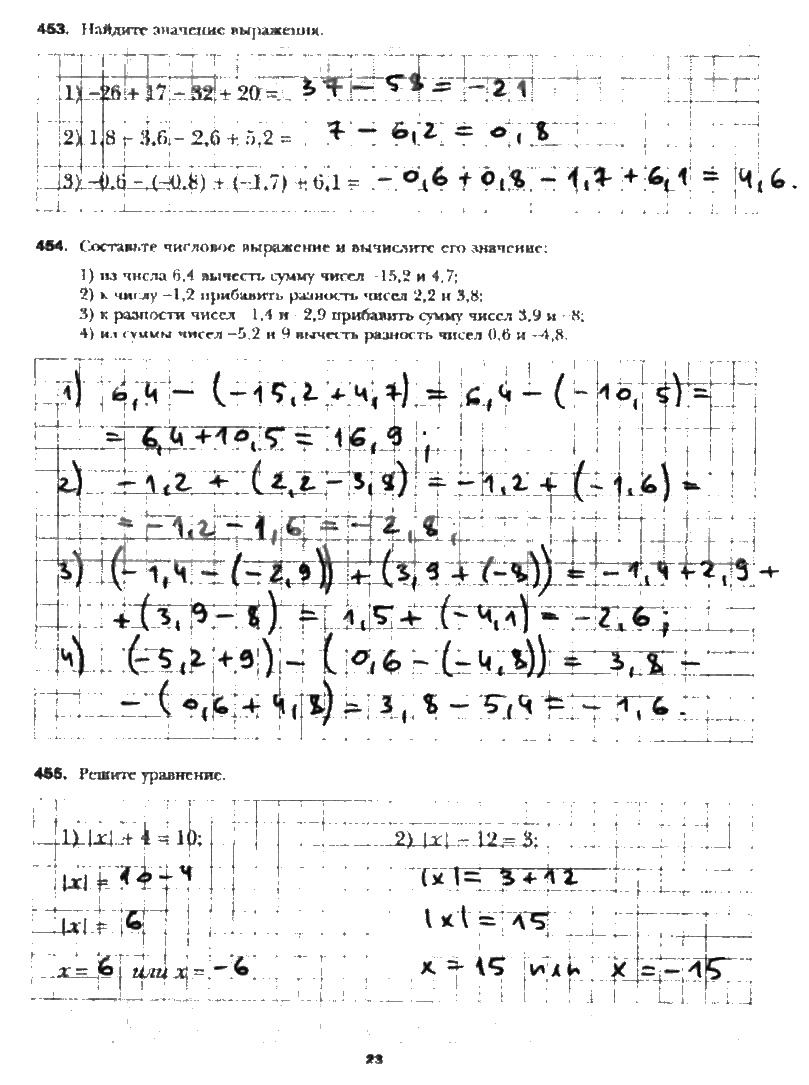 453. Найдите значение выражения.
1) −26 + 17 − 32 + 20 = 37 − 58 = −21
2) 1,8 − 3,6 − 2,6 + 5,2 = 7 − 6,2 = 0,8
3) −0,6 − (−0,8) + (−1,7) + 6,1 = −0,6 + 0,8 − 1,7 + 6,1 = 4,6.
454. Составьте числовое выражение и вычислите его значение:
1) из числа 6,4 вычесть сумму чисел −15,2 и 4,7;
2) к числу −1,2 прибавить разность чисел 2,2 и 3,8;
3) к разности чисел −1,4 и −2,9 прибавить сумму чисел 3,9 и −8;
4) из суммы чисел −5,2 и 9 вычесть разность чисел 0,6 и −4,8.
1) 6,4 − (−15,2 + 4,7) = 6,4 − (−10,5) =
= 6,4 + 10,5 = 16,9 ;
2) −1,2 + (2,2 − 3,8) = −1,2 + (−1,6) =
= −1,2 − 1,6 = −2,8,
3) (−1,4 − (−2,9)) + (3,9 + (−8)) = −1,4 + 2,9 +
+ (3,9 − 8) = 1,5 + (−4,1) = −2,6;
4) (−5,2 + 9) − (0,6 − (−4,8)) = 3,8 −
− (0,6 + 4,8) = 3,8 − 5,4 = −1,6.
455. Решите уравнение.
1) |x| + 4 = 10; 2) |x| − 12 = 3;
|x| = 10 − 4 |x| = 3 + 12
|x| = 6 |x| = 15
x = 6 или x = −6 x = 15 или x = −15
23